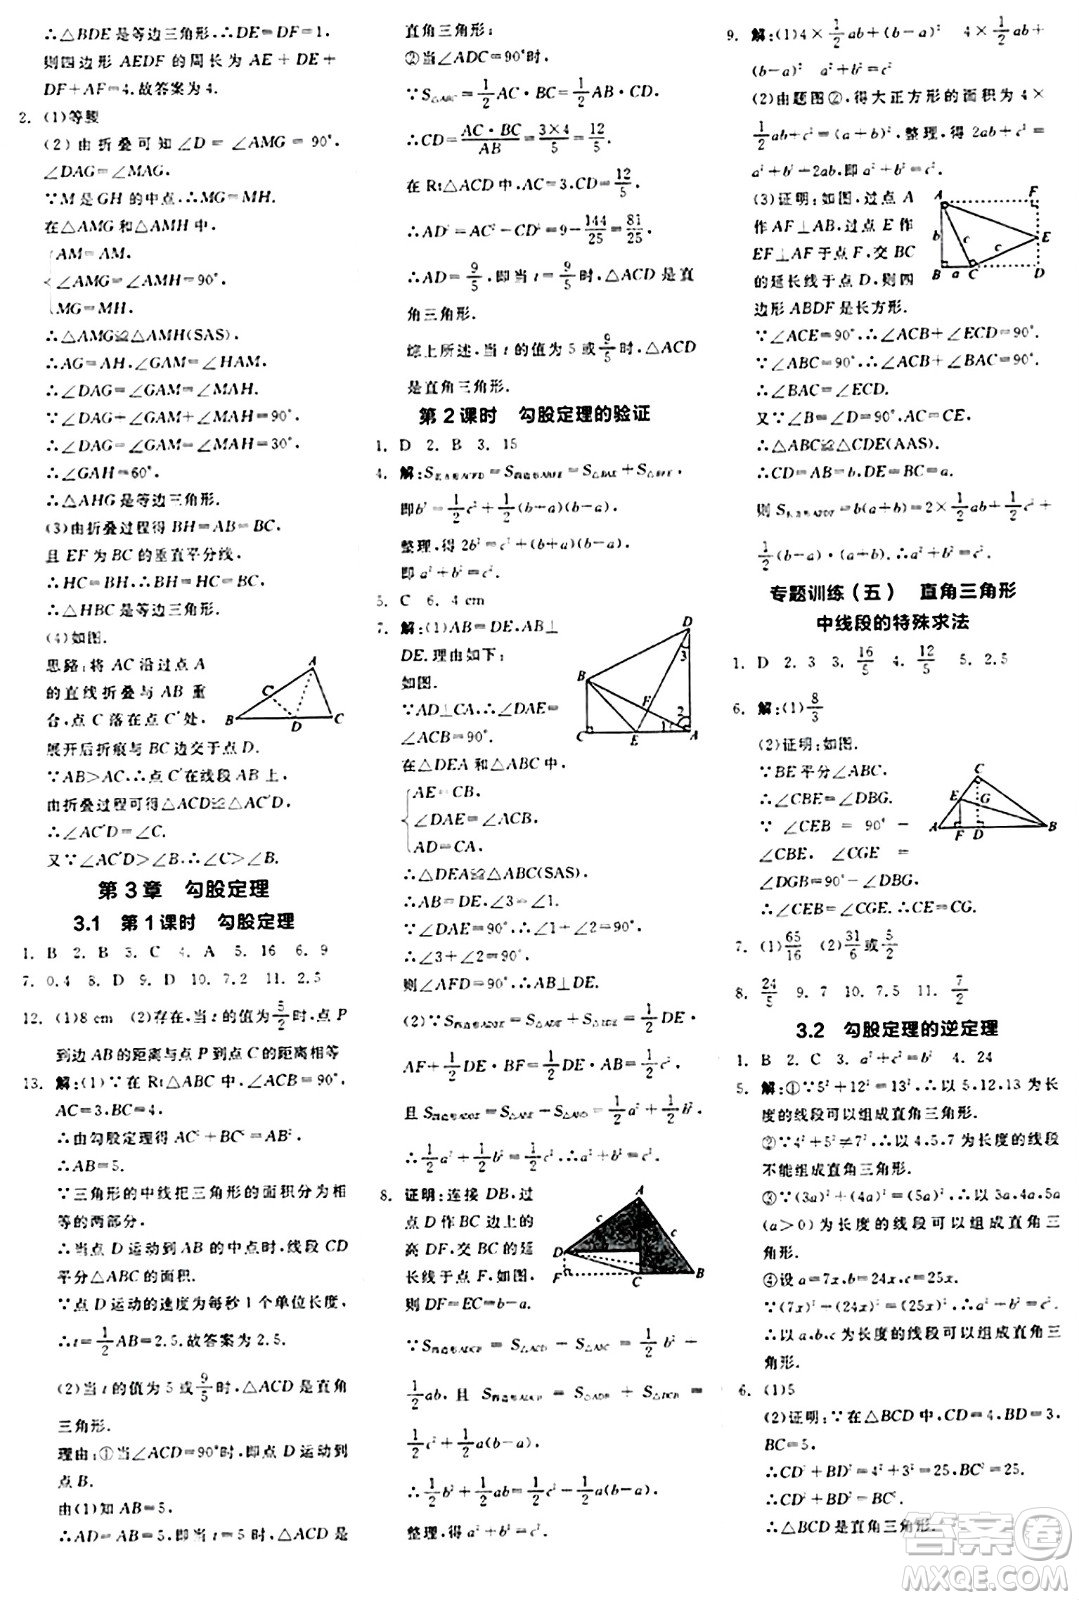 ∴△BDE 是等边三角形,∴DE=DF=1,
则四边形 AEDF 的周长为 AE+DE+
DF+AF=4.故答案为 4.
2. (1)等腰
(2)由折叠可知∠D=∠AMG=90°,
∠DAG=∠MAG.
∵M 是 GH 的中点,∴MG=MH.
在△AMG 和△AMH 中,
AM=AM,
∠AMG=∠AMH=90°,
MG=MH,
∴△AMG≌△AMH(SAS).
∴AG=AH,∠GAM=∠HAM.
∴∠DAG=∠GAM=∠MAH.
∵∠DAG+∠GAM+∠MAH=90°,
∴∠DAG=∠GAM=∠MAH=30°.
∴∠GAH=60°.
∴△AHG 是等边三角形.
(3)由折叠过程得 BH=AB=BC,
且 EF 为 BC 的垂直平分线,
∴HC=BH.∴BC=BH=HC.
∴△HBC 是等边三角形.
(4)如图.
思路:将 AC 沿过点 A
的直线折叠与 AB 重
合,点 C 落在点 C′处,
展开后折痕与 BC 边交于点 D.
∵AB>AC,∴点 C′在线段 AB 上,
由折叠过程可得△AC′D≌△ACD,
∴∠AC′D=∠C.
又∵∠AC′D>∠B,∴∠C>∠B.
A
B
D
C
第 3 章 勾股定理
3.1 第 1 课时 勾股定理
1. B 2. B 3. C 4. A 5. 16 6. 9
7. 0.4 8. D 9. D 10. 7.2 11. 2.5
12. (1)8 cm (2)存在,当 t 的值为5/2时,点 P
到边 AB 的距离与点 P 到点 C 的距离相等
13. 解:(1)∵在 Rt△ABC 中,∠ACB=90°,
AC=3,BC=4,
∴由勾股定理得 AC²+BC²=AB²,
∴AB=5.
∵三角形的中线把三角形的面积分为相
等的两部分,
∴当点 D 运动到 AB 的中点时,线段 CD
平分△ABC 的面积.
∵点 D 运动的速度为每秒 1 个单位长度,
∴t=1/2AB=2.5,故答案为 2.5.
(2)当 t 的值为 5 或9/5时,△ACD 是直角
三角形.
理由:①当∠ACD=90°时,即点 D 运动到
点 B.
由(1)知 AB=5,
∴AD=AB=5,即当 t=5 时,△ACD 是
直角三角形;
②当∠ADC=90°时,
∵S△ABC=1/2AC·BC=1/2AB·CD,
∴CD=AC·BC/AB=3×4/5=12/5.
在 Rt△ACD 中,AC=3,CD=12/5,
∴AD²=AC²-CD²=9-144/25=81/25,
∴AD=9/5,即当 t=9/5时,△ACD 是直
角三角形.
综上所述,当 t 的值为 5 或9/5时,△ACD
是直角三角形.
第 2 课时 勾股定理的验证
1. D 2. B 3. 15
4. 解:S正方形ACFD=S四边形ABFE=S△BAE+S△BFE,
即b²=1/2c²+1/2(b+a)(b-a),
整理,得 2b²=c²+(b+a)(b-a),
即 a²+b²=c².
5. C 6. 4 cm
7. 解:(1)AB=DE,AB⊥
DE.理由如下:
如图.
∵AD⊥CA,∴∠DAE=
∠ACB=90°.
在△DEA 和△ABC 中,
AE=CB,
∠DAE=∠ACB,
AD=CA,
∴△DEA≌△ABC(SAS).
∴AB=DE,∠3=∠1.
∵∠DAE=90°,∴∠1+∠2=90°,
∴∠3+∠2=90°,
则∠AFD=90°,∴AB⊥DE.
(2)∵S四边形ADBE=S△ADE+S△BDE=1/2DE·
AF+1/2DE·BF=1/2DE·AB=1/2c²,
且 S四边形ADBE=S△ABE+S△ADB=1/2a²+1/2b²,
∴1/2a²+1/2b²=1/2c²,∴a²+b²=c².
D
3
B
F
2
1
C
E
A
8. 证明:连接 DB,过
点 D 作 BC 边上的
高 DF,交 BC 的延
长线于点 F,如图,
则 DF=EC=b-a.
∵S四边形ADCB=S△ACD+S△ABC=1/2b²+
1/2ab,且 S四边形ADCB=S△ADB+S△DCB=
1/2c²+1/2a(b-a),
∴1/2b²+1/2ab=1/2c²+1/2a(b-a),
整理,得 a²+b²=c².
A
c
c
D
F
C
B
9. 解:(1)4×1/2ab+(b-a)² 4×1/2ab+
(b-a)² a²+b²=c²
(2)由题图②,得大正方形的面积=4×
1/2ab+c²=(a+b)²,整理,得 2ab+c²=
a²+b²+2ab,即 a²+b²=c².
(3)证明:如图,过点 A
作 AF⊥AB,过点 E 作
EF⊥AF 于点 F,交 BC
的延长线于点 D,则四
边形 ABDF 是长方形.
∵∠ACE=90°,∴∠ACB+∠ECD=90°.
∵∠ABC=90°,∴∠ACB+∠BAC=90°.
∴∠BAC=∠ECD.
又∵∠B=∠D=90°,AC=CE,
∴△ABC≌△CDE(AAS).
∴CD=AB=b,DE=BC=a,
则 S长方形ABDF=b(a+b)=2×1/2ab+1/2c²+
1/2(b-a)·(a+b).∴a²+b²=c².
A
F
b
c
c
E
B
a
C
D
专题训练(五) 直角三角形
中线段的特殊求法
1. D 2. 3 3. 16/5 4. 12/5 5. 2.5
6. 解:(1)8/3
(2)证明:如图.
∵BE 平分∠ABC,
∴∠CBE=∠DBG.
∵∠CEB=90°-
∠CBE,
∠DGB=90°-∠DBG,
∴∠CEB=∠DGB=∠CGE,∴CE=CG.
C
E
G
A
F
D
B
7. (1)65/16 (2)31/6或5/2
8. 24/5 9. 7 10. 7.5 11. 7/2
3.2 勾股定理的逆定理
1. B 2. C 3. a²+c²=b² 4. 24
5. 解:①∵5²+12²=13²,∴以 5,12,13为长
度的线段可以组成直角三角形.
②∵4²+5²≠7²,∴以 4,5,7 为长度的线段
不能组成直角三角形.
③∵(3a)²+(4a)²=(5a)²,∴以 3a,4a,5a
(a>0)为长度的线段可以组成直角三
角形.
④设 a=7x,b=24x,c=25x.
∵(7x)²+(24x)²=(25x)²,∴a²+b²=c².
∴以 a,b,c 为长度的线段可以组成直角三
角形.
6. (1)5
(2)证明:∵在△BCD 中,CD=4,BD=3,
∴CD²+BD²=4²+3²=25,BC²=25.
∴CD²+BD²=BC².
∴△BCD 是直角三角形.
答案圈
MXQE.COM